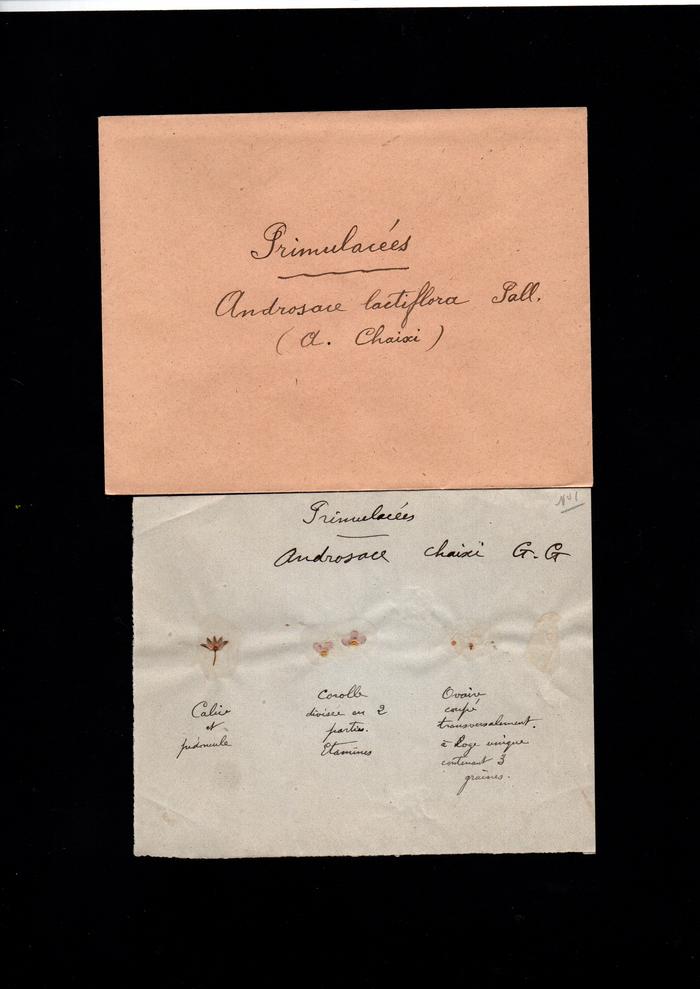 Primulacées
Androsace lactiflora Pall.
(A. Chaixi)
N°1
Primulacées
Androsace chaixi G.G
Calice
et
pédoncule
Corolle
divisée en 2
parties.
Etamines
Ovaire
coupé
transversalement.
à loge unique
contenant 3
graines.